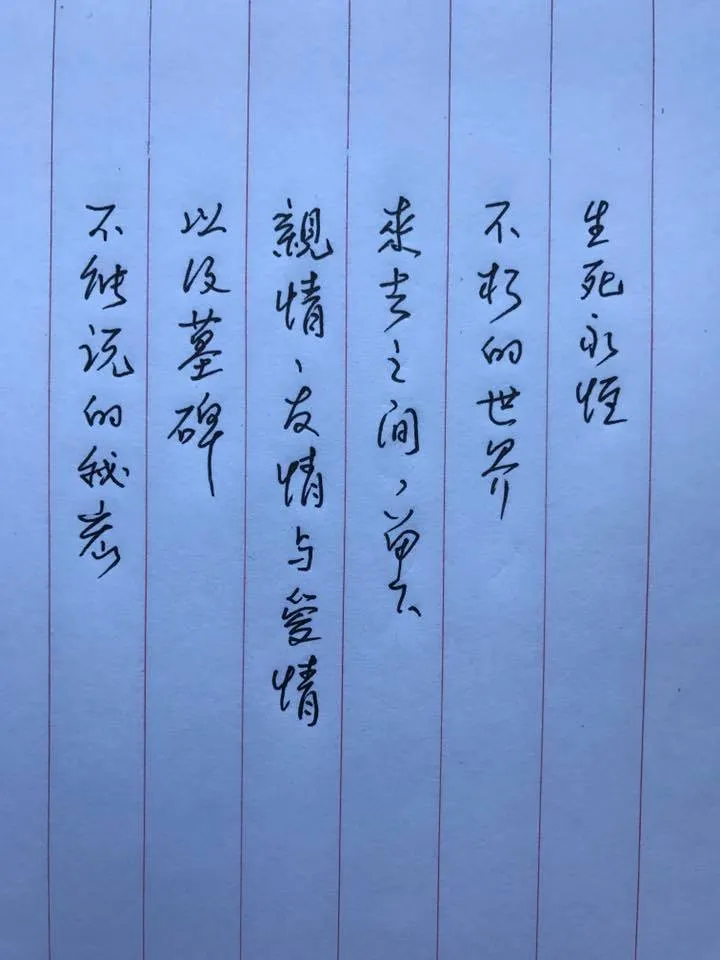 生死永恒
不朽的世界
来去之间、
親情、友情与爱情
以及墓碑
不能说的秘密